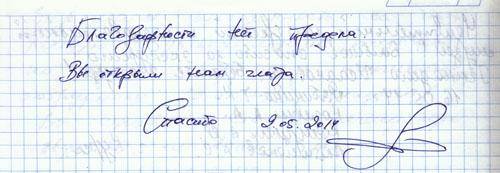 Благодарности нет предела.
Вы открыли нам глаза.
Спасибо 2.05.2014